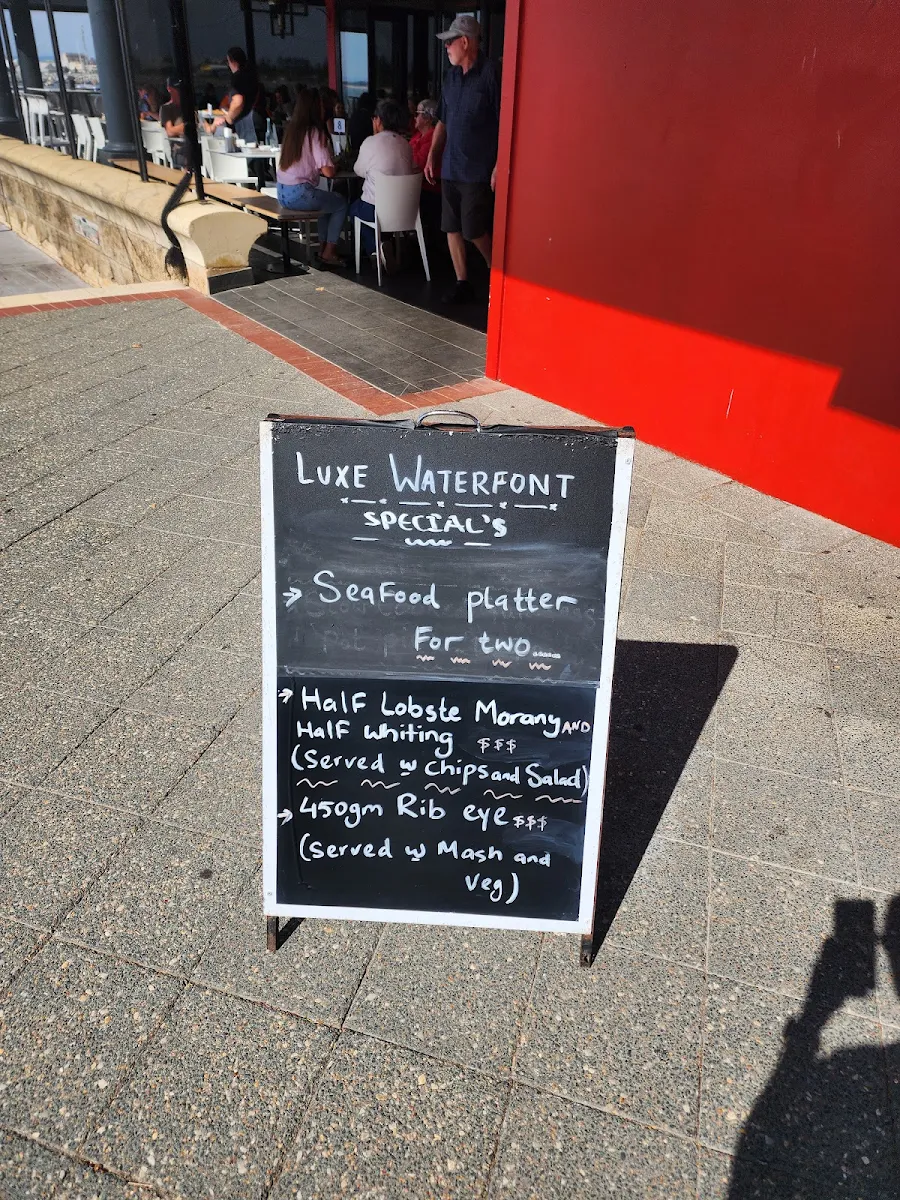 8
LUXE WATERFONT
SPECIAL'S
SeaFood platter
For two....
Half Lobste Morany AND
Half whiting $$$
(Served w chips and Salad)
450gm Rib eye $$$
(Served w Mash and
Veg)